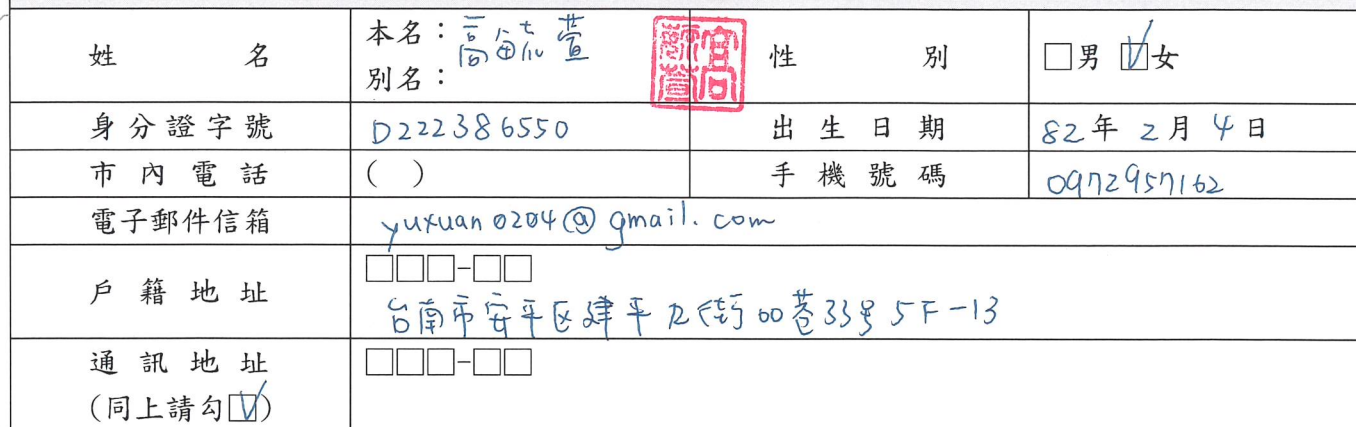 姓名 本名：高毓萱 性別 □男 ☑女
別名：
身分證字號 D222386550 出生日期 82年2月4日
市內電話 ( ) 手機號碼 0972957162
電子郵件信箱 yuxuan0204@gmail.com
戶籍地址 □□□-□□
台南市安平区建平九街00巷33号5F-13
通訊地址 □□□-□□
(同上請勾☑)